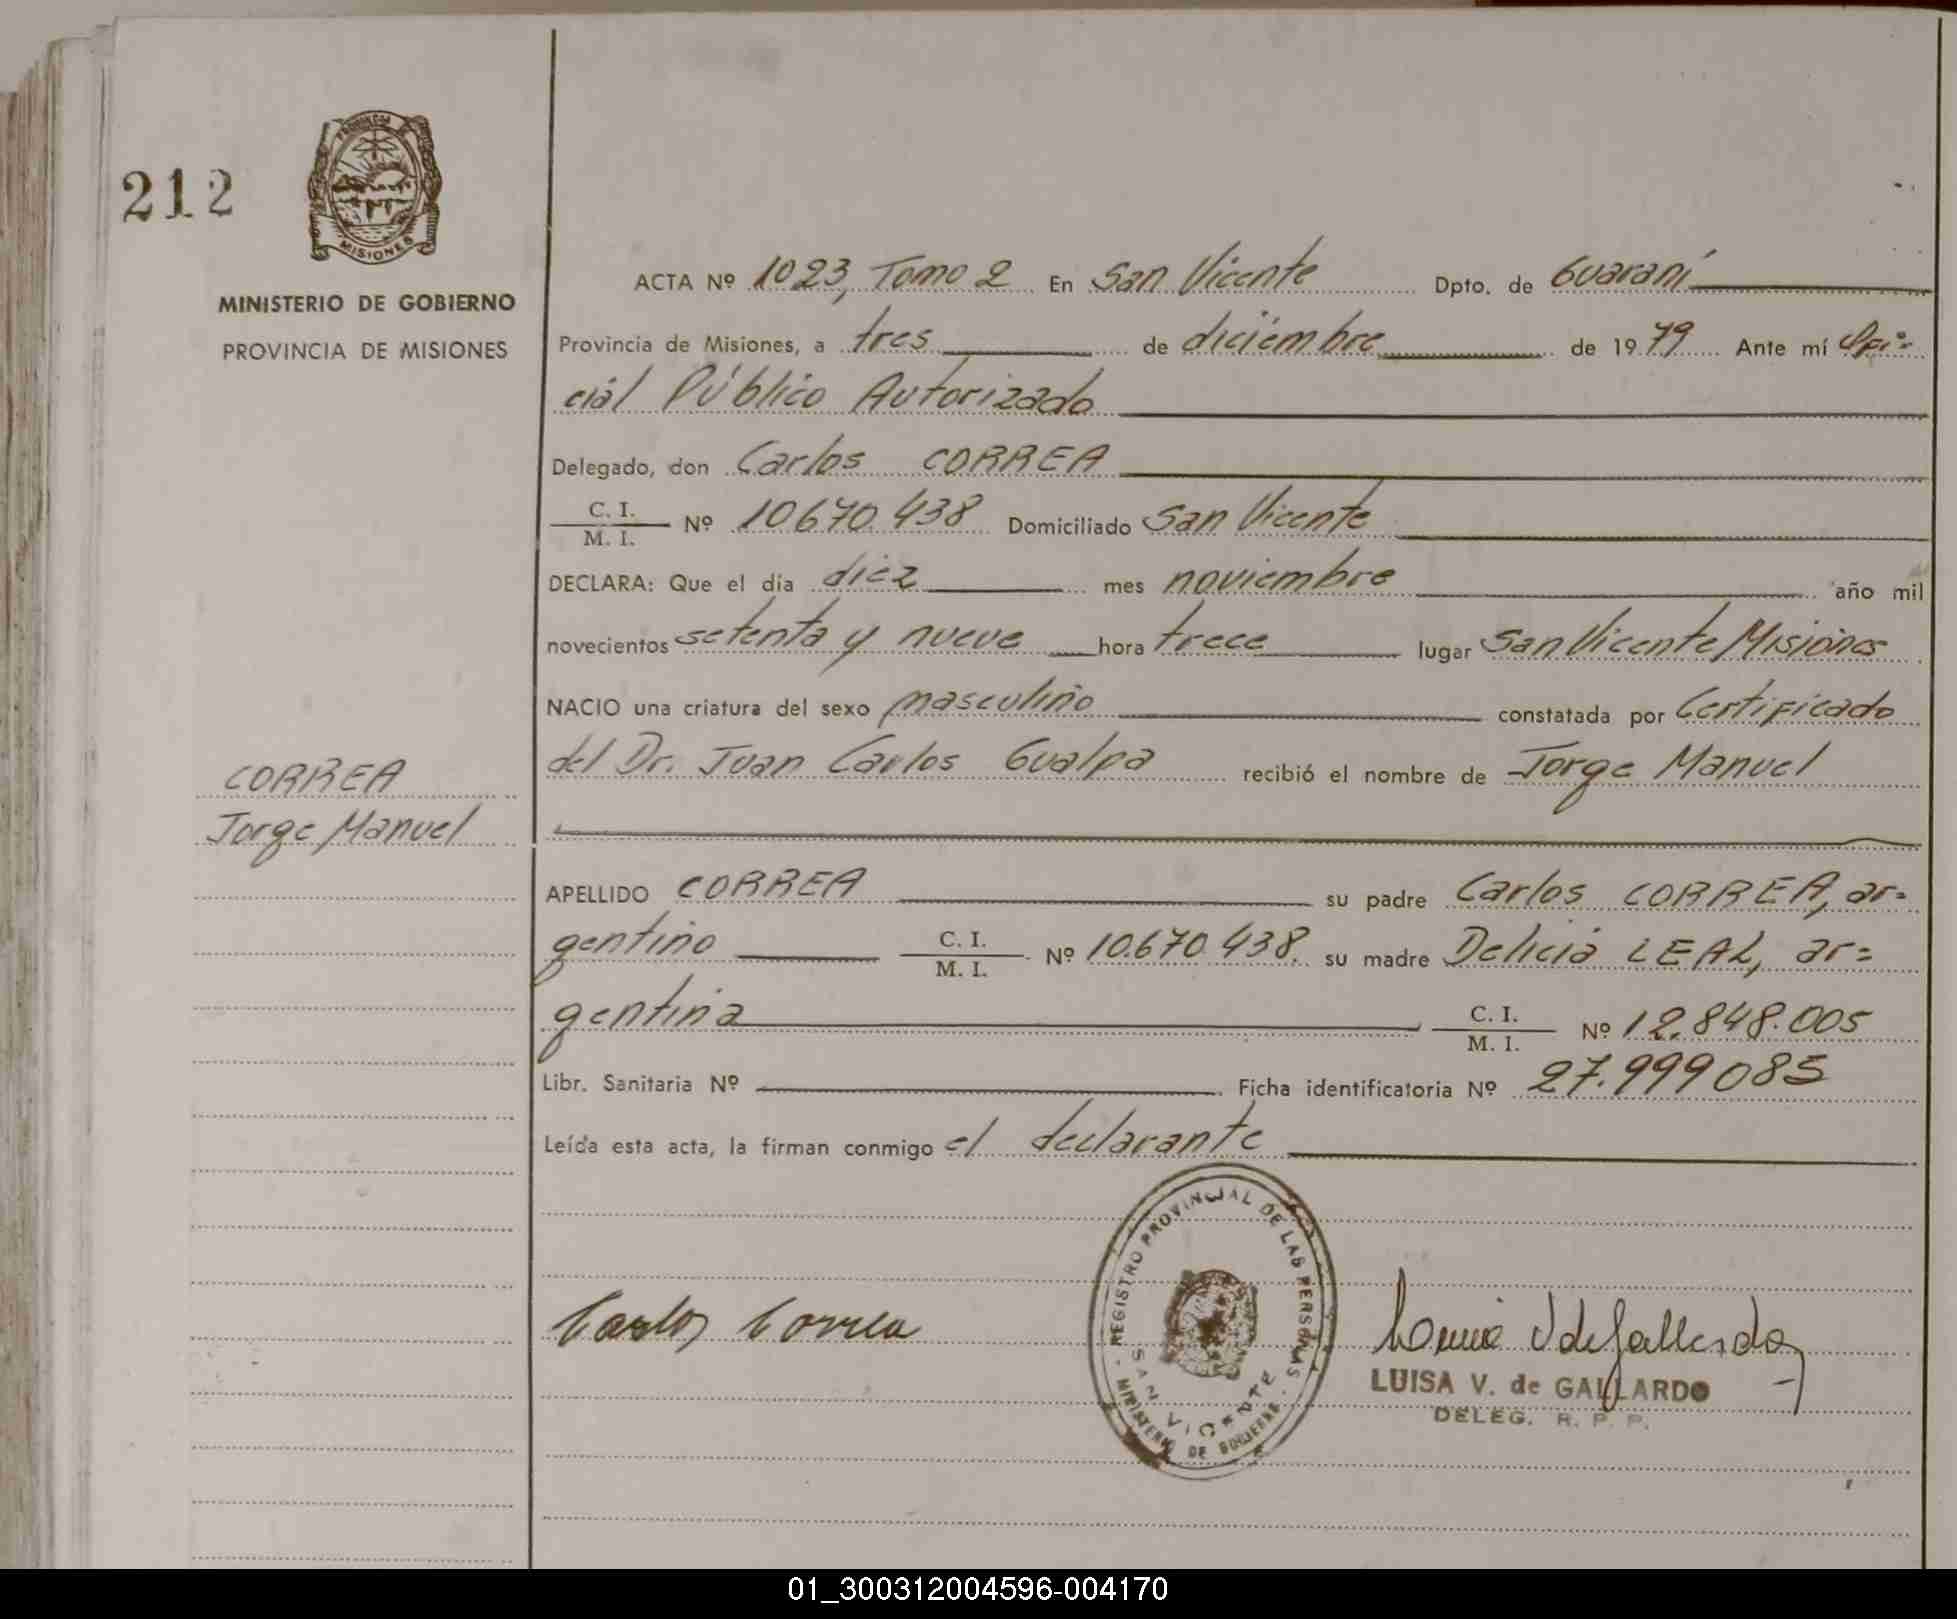 212
PROVINCIA DE MISIONES
MINISTERIO DE GOBIERNO
PROVINCIA DE MISIONES
ACTA Nº 1023, Tomo 2 En San Vicente Dpto. de Guaraní
Provincia de Misiones, a tres de diciembre de 1979 Ante mí Ofi=
cial Público Autorizado
Delegado, don Carlos CORREA
C. I.
M. I. Nº 10670.438 Domiciliado San Vicente
DECLARA: Que el día diez mes noviembre año mil
novecientos setenta y nueve hora trece lugar San Vicente Misiones
NACIO una criatura del sexo masculino constatada por Certificado
del Dr. Juan Carlos Gualpa recibió el nombre de Jorge Manuel
CORREA
Jorge Manuel
APELLIDO CORREA su padre Carlos CORREA, ar=
gentino C. I.
M. I. Nº 10.670.438. su madre Delicia LEAL, ar=
gentina C. I.
M. I. Nº 12.848.005
Libr. Sanitaria Nº Ficha identificatoria Nº 27.999085
Leída esta acta, la firman conmigo el declarante
REGISTRO PROVINCIAL DE LAS PERSONAS
SAN VICENTE
MINISTERIO DE GOBIERNO
Carlos Correa
Luisa V de Gallardo
LUISA V. de GALLARDO
DELEG. R. P. P.
01_300312004596-004170